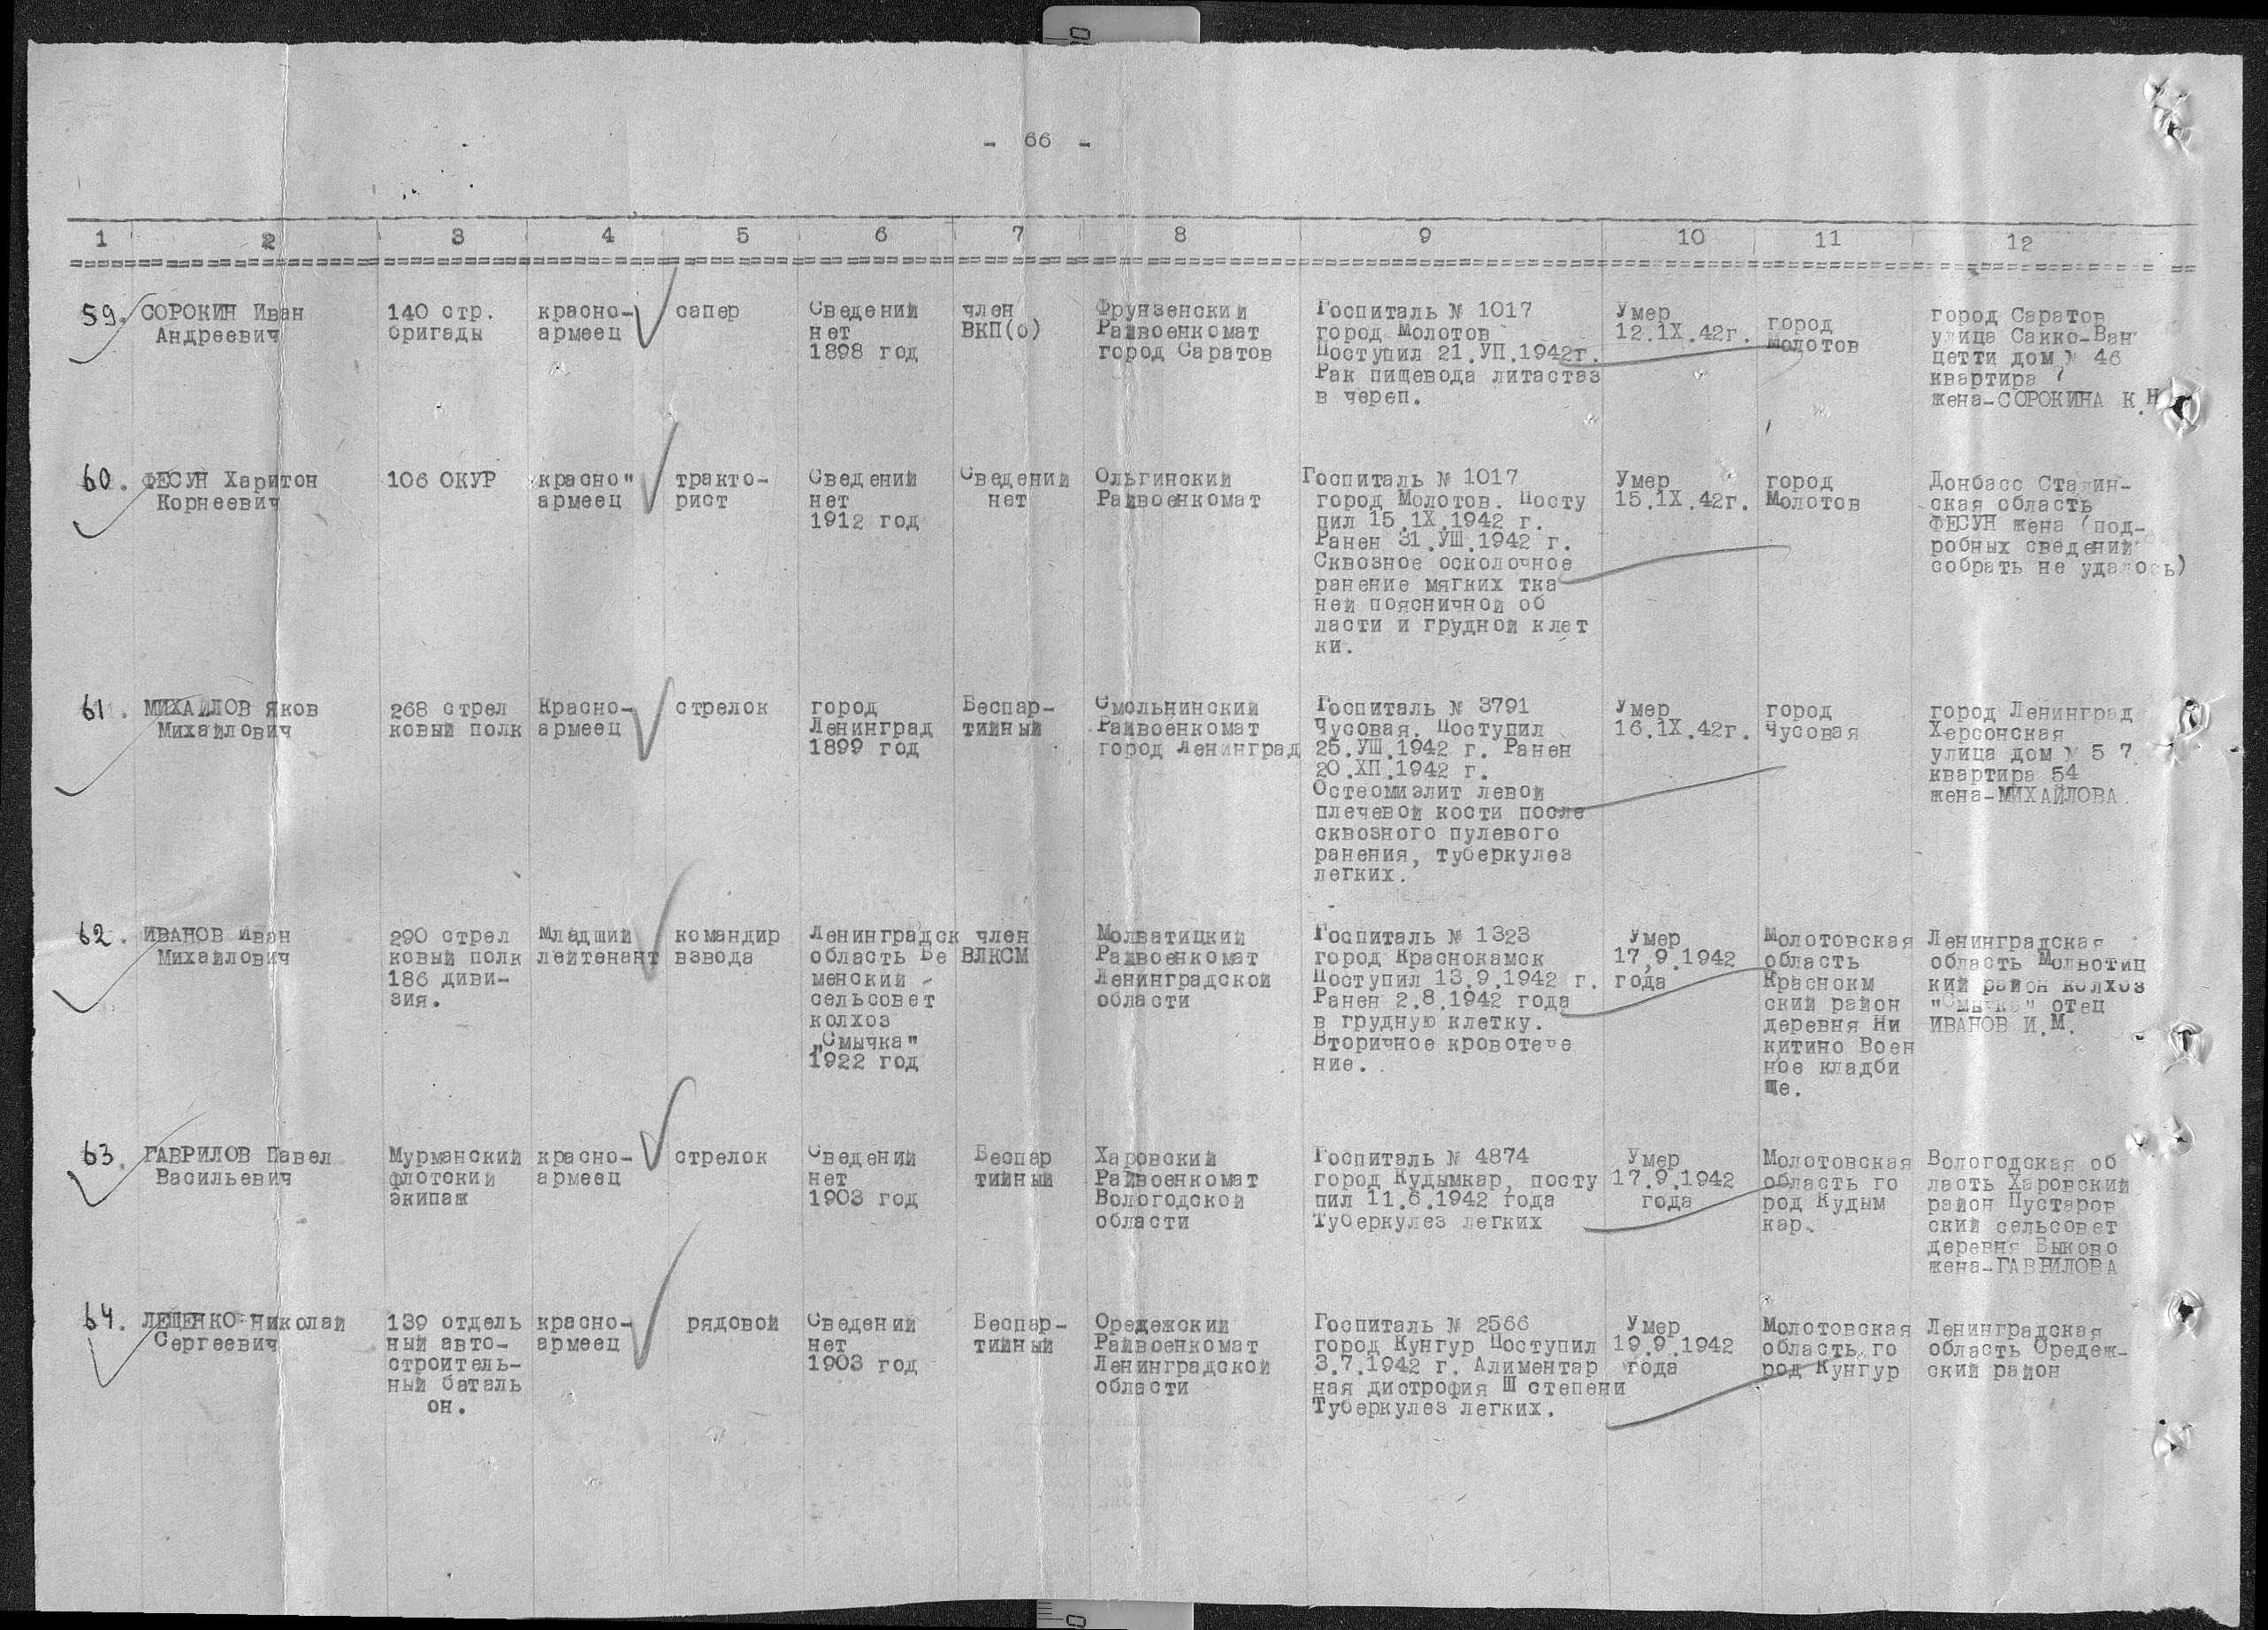 - 66 -
1 2 3 4 5 6 7 8 9 10 11 12
59. СОРОКИН Иван
Андреевич
140 стр.
бригады
красно-
армеец
сапер
Сведений
нет
1898 год
член
ВКП(б)
Фрунзенский
Райвоенкомат
город Саратов
Госпиталь № 1017
город Молотов
Поступил 21.УП.1942г.
Рак пищевода литастаз
в череп.
Умер
12.1Х.42г.
город
Молотов
город Саратов
улица Сакко-Ван
цетти дом № 46
квартира
жена-СОРОКИНА К.Н
60. ФЕСУН Харитон
Корнеевич
106 ОКУР
красно"
армеец
тракто-
рист
Сведений
нет
1912 год
Сведений
нет
Ольгинский
Райвоенкомат
Госпиталь № 1017
город Молотов. Посту
пил 15.1Х.1942 г.
Ранен 31.УШ.1942 г.
Сквозное осколочное
ранение мягких тка
ней поясничной об
ласти и грудной клет
ки.
Умер
15.1Х.42г.
город
Молотов
Донбасс Сталин-
ская область
ФЕСУН жена (под-
робных сведений
собрать не удалось)
61. МИХАЙЛОВ Яков
Михайлович
268 стрел
ковый полк
Красно-
армеец
стрелок
город
Ленинград
1899 год
Беспар-
тийный
Смольнинский
Райвоенкомат
город Ленинград
Госпиталь № 3791
Чусовая. Поступил
25.УШ.1942 г. Ранен
20.ХП.1942 г.
Остеомиэлит левой
плечевой кости после
сквозного пулевого
ранения, туберкулез
легких.
Умер
16.1Х.42г.
город
Чусовая
город Ленинград
Херсонская
улица дом № 5 7
квартира 54
жена-МИХАЙЛОВА.
62. ИВАНОВ Иван
Михайлович
290 стрел
ковый полк
186 диви-
зия.
Младший
лейтенант
командир
взвода
Ленинградск
область Ве
менский -
сельсовет
колхоз
"Смычка"
1922 год
член
ВЛКСМ
Молватицкий
Райвоенкомат
Ленинградской
области
Госпиталь № 1323
город Краснокамск
Поступил 13.9.1942 г.
Ранен 2.8.1942 года
в грудную клетку.
Вторичное кровотече
ние.
Умер
17.9.1942
года
Молотовская
область
Краснокм
ский район
деревня Ни
китино Воен
ное кладби
ще.
Ленинградская
область Молвотиц
кий район колхоз
"Смычка" отец
ИВАНОВ И.М.
63. ГАВРИЛОВ Павел
Васильевич
Мурманский
флотский
экипаж
красно-
армеец
стрелок
Сведений
нет
1903 год
Беспар
тийный
Харовский
Райвоенкомат
Вологодской
области
Госпиталь № 4874
город Кудымкар, посту
пил 11.6.1942 года
Туберкулез легких
Умер
17.9.1942
года
Молотовская
область го
род Кудым
кар.
Вологодская об
ласть Харовский
район Пустаров
ский сельсовет
деревня Быково
жена-ГАВРИЛОВА
64. ЛЕЩЕНКО Николай
Сергеевич
139 отдель
ный авто-
строитель-
ный баталь
он.
красно-
армеец
рядовой
Сведений
нет
1903 год
Беспар-
тийный
Оредежский
Райвоенкомат
Ленинградской
области
Госпиталь № 2566
город Кунгур Поступил
3.7.1942 г. Алиментар
ная дистрофия Ш степени
Туберкулез легких.
Умер
19.9.1942
года
Молотовская
область го
род Кунгур
Ленинградская
область Оредеж-
ский район